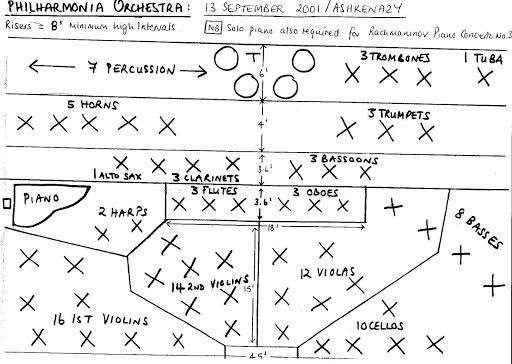 PHILHARMONIA ORCHESTRA: 13 SEPTEMBER 2001 / ASHKENAZY
Risers = 8" Minimum high Intervals. NB Solo piano also required for Rachmaninov Piano Concerto No.3
7 PERCUSSION
T
6'
3 TROMBONES
1 TUBA
5 HORNS
4'
3 TRUMPETS
1 ALTO SAX
3 CLARINETS
3.6'
3 BASSOONS
PIANO
2 HARPS
3 FLUTES
3.6'
3 OBOES
18'
8 BASSES
14 2ND VIOLINS
15'
12 VIOLAS
16 1ST VIOLINS
10 CELLOS
4.5'